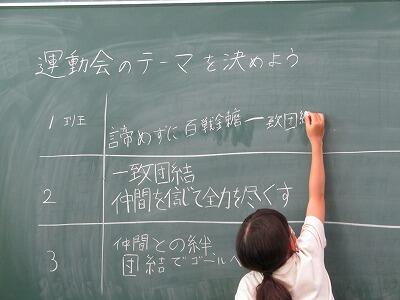 運動会のテーマを決めよう
1班
諦めずに百戦錬磨一致団結
2
一致団結
仲間を信じて全力を尽くす
3
仲間との絆
団結でゴールへ